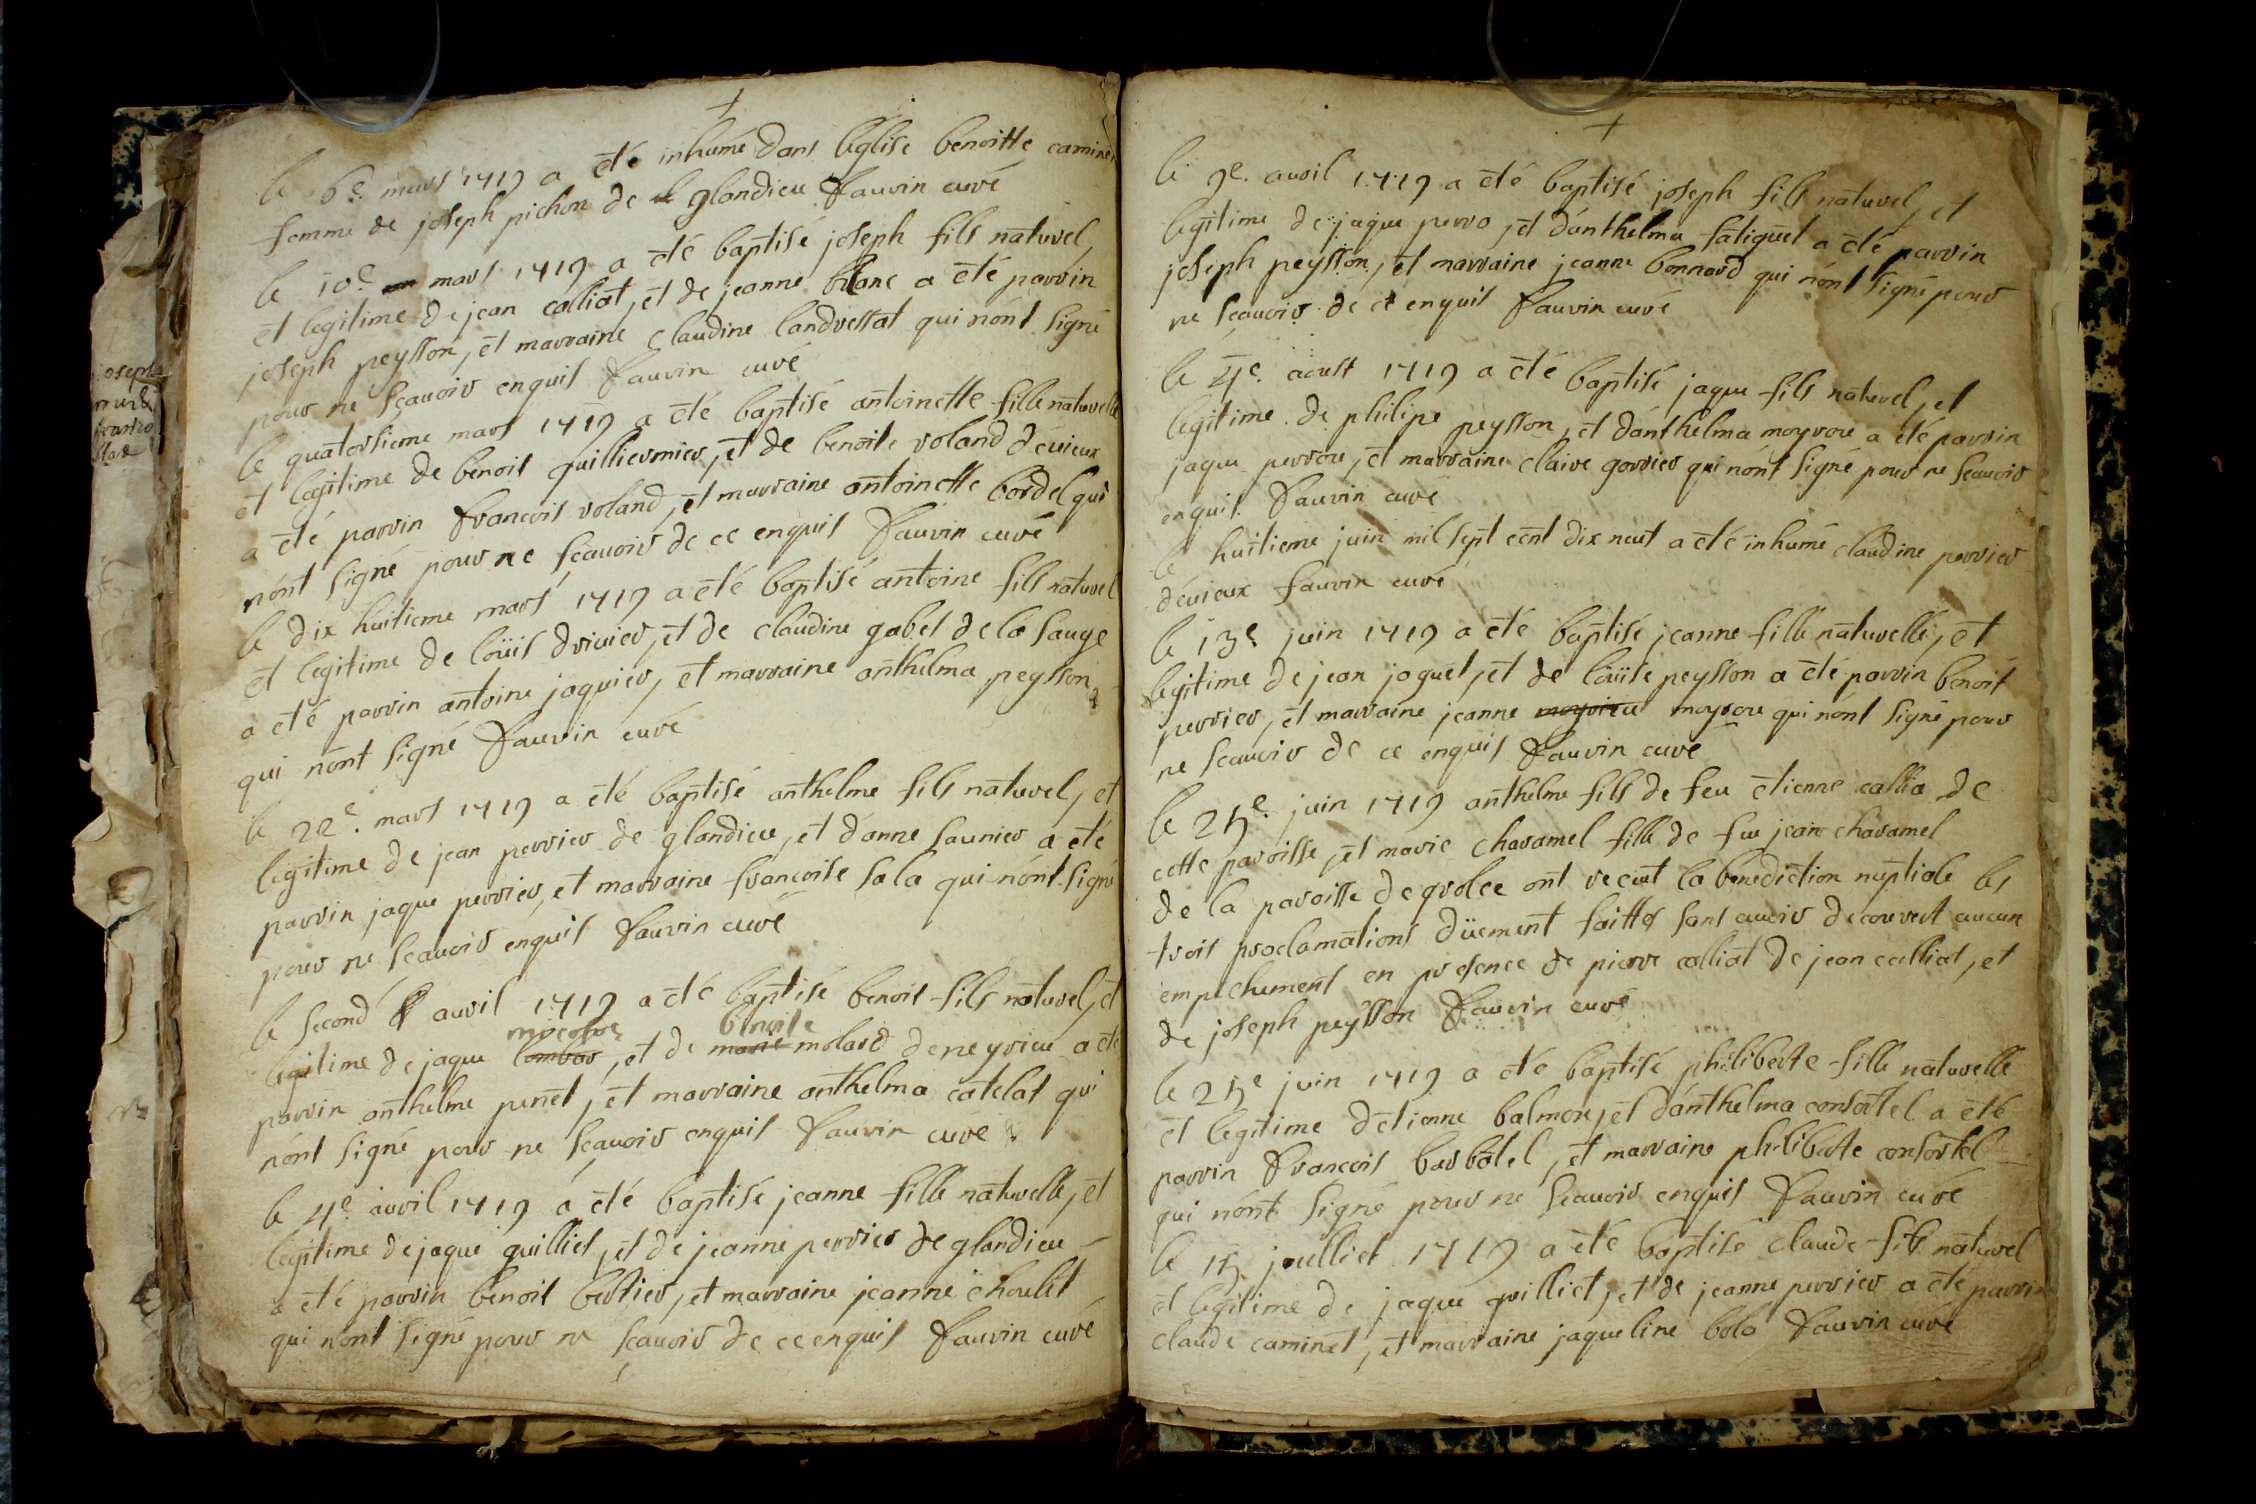 +
le 6e. mars 1719 a été inhumé dans léglise benoitte caminet
femme de joseph pichon de glandieu fauvin curé
le 10e mars 1719 a été baptisé joseph fils naturel,
et legitime de jean calliat, et de jeanne blanc a été parrin
joseph peysson, et marraine claudine landressat qui nónt signé
pour ne sçauoir enquis fauvin curé
le quatorsieme mars 1719 a été baptisé antoinette fille naturelle
et legitime de benoit guilliermier, et de benoite roland déuieux
a été parrin francois roland, et marraine antoinette bordel qui
nónt signé pour ne sçauoir de ce enquis fauvin curé
le dix huitieme mars 1719 a été baptisé antoine fils naturel
et legitime de loüis driuier, et de claudine gabet de la sauge
a été parrin antoine jaquier, et marraine anthelma peysson
qui nont signé fauvin curé
le 22e. mars 1719 a été baptisé anthelme fils naturel, et
legitime de jean perrier de glandieu, et danne saunier a été
parrin jaque perrier, et marraine francoise sala qui nónt signé
pour ne sçauoir enquis fauvin curé
le second auril 1719 a été baptisé benoit fils naturel, et
benoite
legitime de jaque lombar, et de marie molard de neyrieu a été
parrin anthelme penet, et marraine anthelma catelat qui
nónt signé pour ne sçauoir enquis fauvin curé
le 4e. auril 1719 a été baptisé jeanne fille naturelle, et
legitime de jaque quilliet, et de jeanne perrier de glandieu
a été parrin benoit bertier, et marraine jeanne choulet
qui nont signé pour ne sçauoir de ce enquis fauvin curé
+
le 9e. auril 1719 a été baptisé joseph fils naturel, et
legitime de jaque perro, et dánthelma fatiguet a été parrin
joseph peysson, et marraine jeanne bonnard qui nónt signé pour
ne sçauoir de ce enquis fauvin curé
le 4e. aoust 1719 a été baptisé jaque fils naturel, et
legitime de philipe peysson, et dánthelma moyroux a été parrin
jaque perrou, et marraine claire gorrier qui nónt signé pour ne sçauoir
enquis fauvin curé
le huitieme juin mil sept cent dix neuf a été inhumé claudine perrier
déuieux fauvin curé
le 13e juin 1719 a été baptisé jeanne fille naturelle, et
legitime de jean joguet, et de loüise peysson a été parrin benoit
perrier, et marraine jeanne moyroux qui nónt signé pour
ne sçauoir de ce enquis fauvin curé
le 25e. juin 1719 anthelme fils de feu etienne callia de
cette paroisse, et marie charamel fille de feu jean charamel
de la paroisse de grolee ont receut la benediction nuptiale les
trois proclamations düement faittes sans auoir decouvert aucun
empechement en presence de pierre calliat de jean calliat, et
de joseph peysson fauvin curé
le 25e juin 1719 a été baptisé philiberte fille naturelle
et legitime détienne balmon, et dánthelma consortel a été
parrin francois barbatel, et marraine philiberte consortel
qui nónt signé pour ne sçauoir enquis fauvin curé
le 15 joulliet 1719 a été baptisé claude fils naturel
et legitime de jaque quilliet, et de jeanne perrier a été parrin
claude caminet, et marraine jaqueline bolo fauvin curé